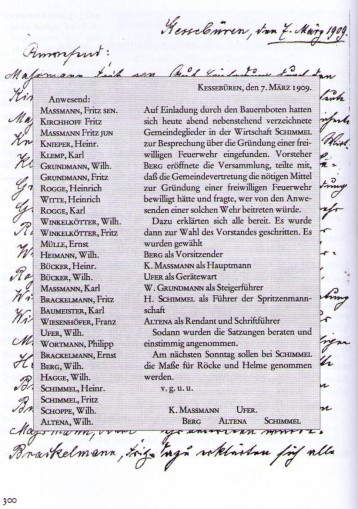 Kessebüren, den 7. März 1909.
Anwesend:
KESSEBÜREN, DEN 7. MÄRZ 1909.
Anwesend:
MASSMANN, Fritz SEN.
KIRCHHOFF Fritz
MASSMANN Fritz JUN
KNIEPER, Heinr.
KLEMP, Karl
GRUNDMANN, Wilh.
GRUNDMANN, Fritz
ROGGE, Heinrich
WITTE, Heinrich
ROGGE, Karl
WINKELKÖTTER, Wilh.
WINKELKÖTTER, Fritz
MÜLLE, Ernst
HEIMANN, Wilh.
BÜCKER, Heinr.
BÜCKER, Wilh.
MASSMANN, Karl
BRACKELMANN, Fritz
BAUMEISTER, Karl
WIESENHÖFER, Franz
UFER, Wilh.
WORTMANN, Philipp
BRACKELMANN, Ernst
BERG, Wilh.
HAGGE, Wilh.
SCHIMMEL, Heinr.
SCHIMMEL, Fritz
SCHOPPE, Wilh.
ALTENA, Wilh.
Auf Einladung durch den Bauernboten hatten
sich heute abend nebenstehend verzeichnete
Gemeindeglieder in der Wirtschaft SCHIMMEL
zur Besprechung über die Gründung einer frei-
willigen Feuerwehr eingefunden. Vorsteher
BERG eröffnete die Versammlung, teilte mit,
daß die Gemeindevertretung die nötigen Mittel
zur Gründung einer freiwilligen Feuerwehr
bewilligt hätte und fragte, wer von den Anwe-
senden einer solchen Wehr beitreten würde.
Dazu erklärten sich alle bereit. Es wurde
dann zur Wahl des Vorstandes geschritten. Es
wurden gewählt
BERG als Vorsitzender
K. MASSMANN als Hauptmann
UFER als Gerätewart
W. GRUNDMANN als Steigerführer
H. SCHIMMEL als Führer der Spritzenmann-
schaft
ALTENA als Rendant und Schriftführer
Sodann wurden die Satzungen beraten und
einstimmig angenommen.
Am nächsten Sonntag sollen bei SCHIMMEL
die Maße für Röcke und Helme genommen
werden.
v. g. u. u.
K. MASSMANN UFER.
BERG ALTENA SCHIMMEL
Brackelmann, Fritz. Dazu erklärten sich alle
300